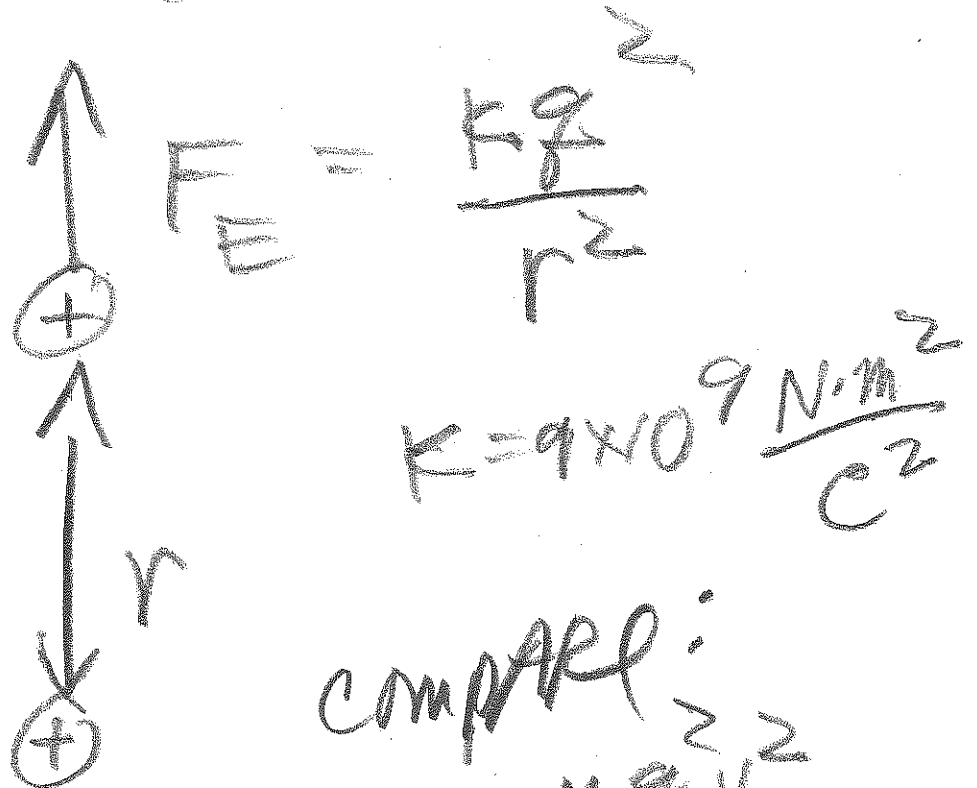 F_E = Kq²
r²
+
K = 9×10⁹ N·m²
C²
r
compare:
+